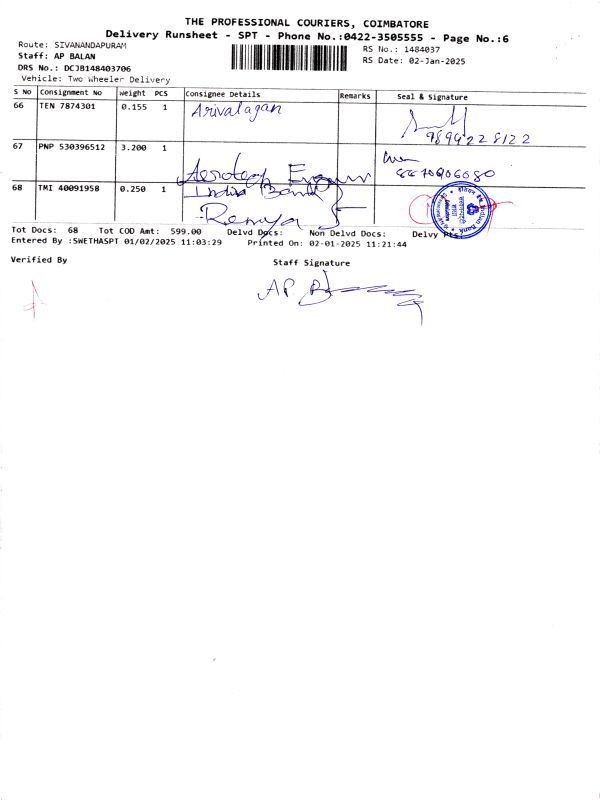 THE PROFESSIONAL COURIERS, COIMBATORE
Delivery Runsheet - SPT - Phone No.:0422-3505555 - Page No.:6
Route: SIVANANDAPURAM
RS No.: 1484037
Staff: AP BALAN
RS Date: 02-Jan-2025
DRS No.: DCJB148403706
Vehicle: Two Wheeler Delivery
S No Consignment No Weight PCS Consignee Details Remarks Seal & Signature
66 TEN 7874301 0.155 1 Arivalagan
9894228122
67 PNP 530396512 3.200 1
68 TMI 40091958 0.250 1 India Bank
Remya
Indian Bank
Tot Docs: 68 Tot COD Amt: 599.00 Delvd Docs: Non Delvd Docs: Delvy Pts:
Entered By :SWETHASPT 01/02/2025 11:03:29 Printed On: 02-01-2025 11:21:44
Verified By Staff Signature
AP